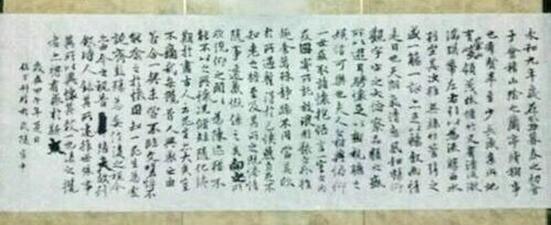 永和九年歲在癸丑暮春之初會
于會稽山陰之蘭亭脩禊事
也群賢畢至少長咸集此地
有崇山峻領茂林脩竹又有清流激
湍暎帶左右引以為流觴曲水
列坐其次雖無絲竹管弦之
盛一觴一詠亦足以暢敘幽情
是日也天朗氣清惠風和暢仰
觀宇宙之大俯察品類之盛
所以遊目騁懷足以極視聽之
娛信可樂也夫人之相與俯仰
一世或取諸懷抱悟言一室之內
或因寄所託放浪形骸之外雖
趣舍萬殊靜躁不同當其欣
於所遇暫得於己快然自足不
知老之將至及其所之既惓情
隨事遷感慨係之矣向之所
欣俛仰之閒以為陳迹猶不
能不以之興懷況脩短隨化終
期於盡古人云死生亦大矣豈
不痛哉每攬昔人興感之由
若合一契未嘗不臨文嗟悼不
能喻之於懷固知一死生為虛
誕齊彭殤為妄作後之視今
亦由今之視昔悲夫故列
敘時人錄其所述雖世殊事
異所以興懷其致一也後之攬
者亦將有感於斯文